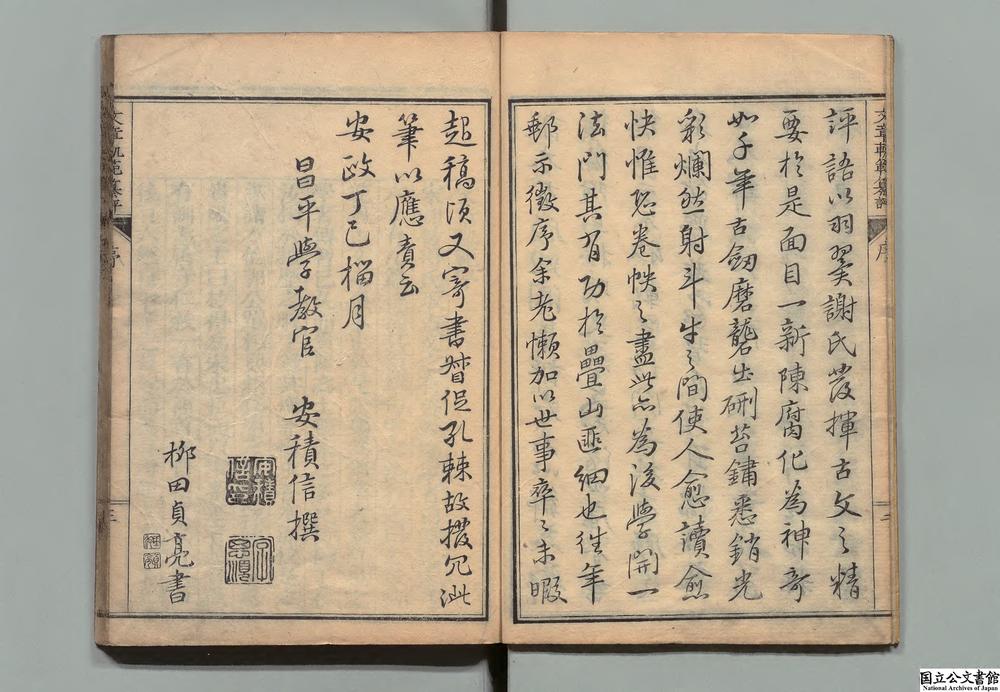 文章軌範纂評 序 三
評語以羽翼謝氏發揮古文之精
要於是面目一新陳腐化為神奇
如千年古劒磨礱出硎苔鏽悉銷光
彩爛然射斗牛之間使人愈讀愈
快惟恐卷帙之盡此亦為後學開一
法門其有功於疊山匪細也往年
郵示徵序余老懶加以世事卒〻未暇
起稿頃又寄書督促孔棘故撥冗泚
筆以應責云
安政丁巳榴月
昌平學教官 安積信撰
安積信印
柳田貞亮書
文章軌範纂評 序 三
国立公文書館
National Archives of Japan